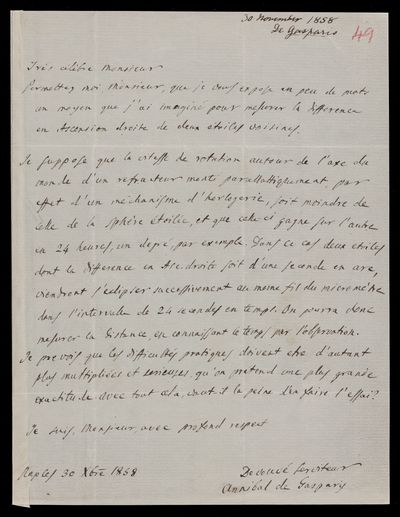 30 November 1858
De Gasparis
49
Très célèbre Monsieur
Permettez moi, Monsieur, que je vous expose en peu de mots
un moyen que j'ai imaginé pour mesurer la difference
en Ascension droite de deux étoiles voisines.
Je suppose que la vitesse de rotation autour de l'axe du
monde d'un refracteur monté parallattiquement, par
effet d'un méchanisme d'horlogerie, soit moindre de
celle de la sphère étoilée, et que celle ci gagne sur l'autre
en 24 heures, un degré, par exemple. Dans ce cas deux etoiles
dont la difference en Asc. droite soit d'une seconde en arc,
viendront s'eclipser successivement au meme fil du micromètre
dans l'intervalle de 24 secondes en temps. On pourra donc
mesurer la distance, en connaissant le temps par l'observation.
Je prevois que les difficultés pratiques doivent etre d'autant
plus multipliées et serieuses, qu'on pretend une plus grande
exactitude. Avec tout cela, vaut il la peine d'en faire l'essai?
Je suis, Monsieur, avec profond respect
Naples 30 Xbre 1858
Devoué serviteur
Annibal de Gasparis